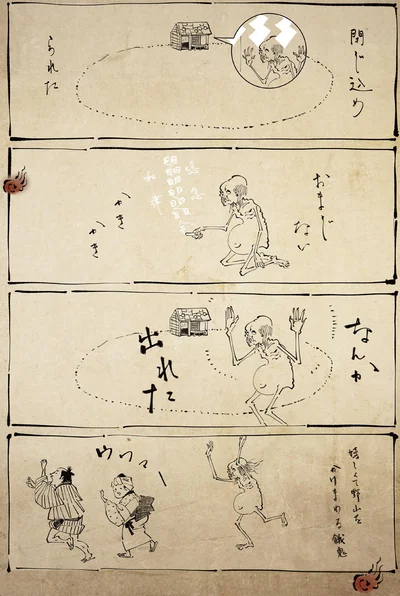 閉じ込め
られた
おまじ
ない
かき
かき
なんか
出れた
嬉しくて野山を
かけまわる餓鬼
ウワァー